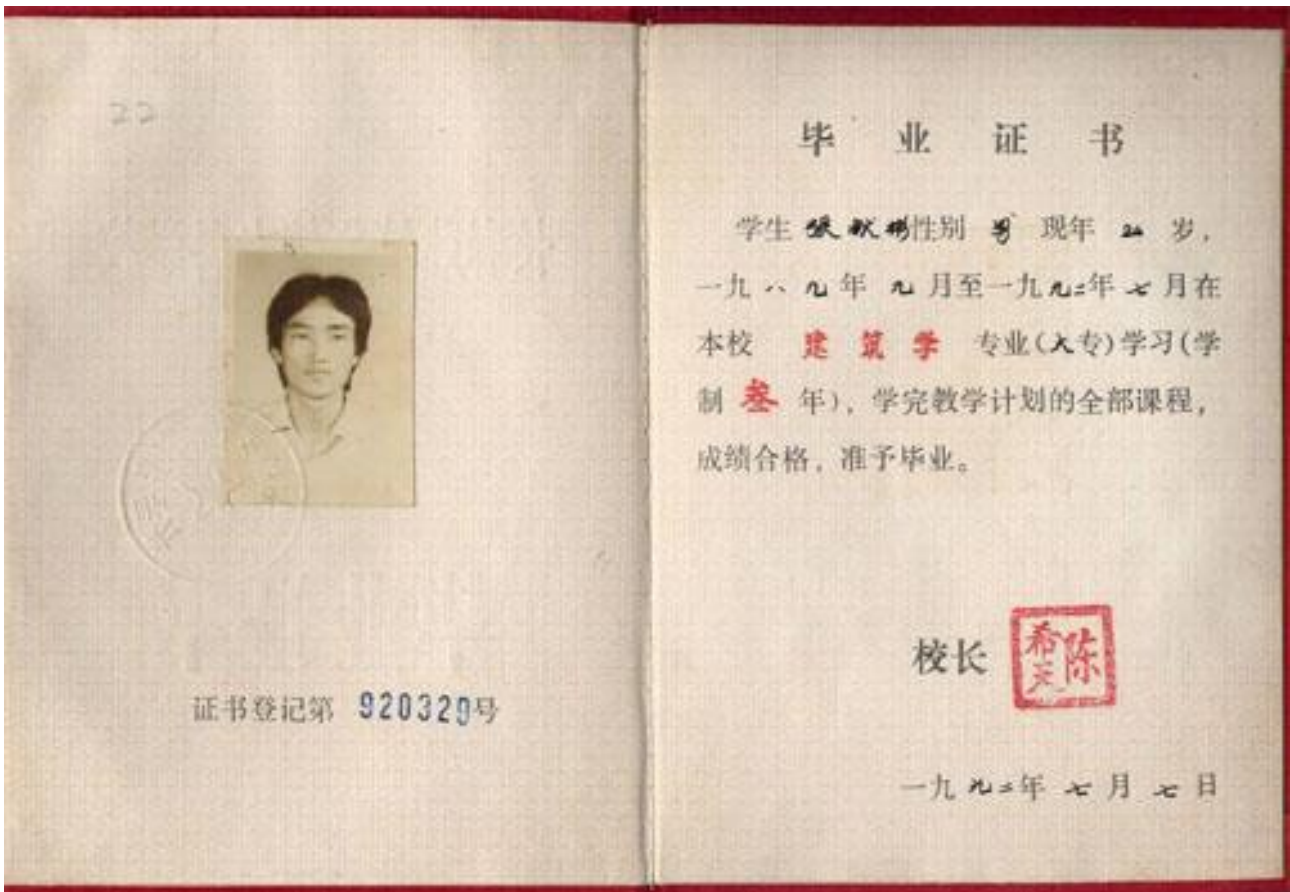 22
证书登记第 920329号
毕业证书
学生 张献彬性别 男 现年 岁，
一九八九年 九月至一九九二年七月在
本校 建筑学 专业(大专)学习(学
制 叁 年)，学完教学计划的全部课程，
成绩合格，准予毕业。
校长 陈希天
一九九二年七月七日